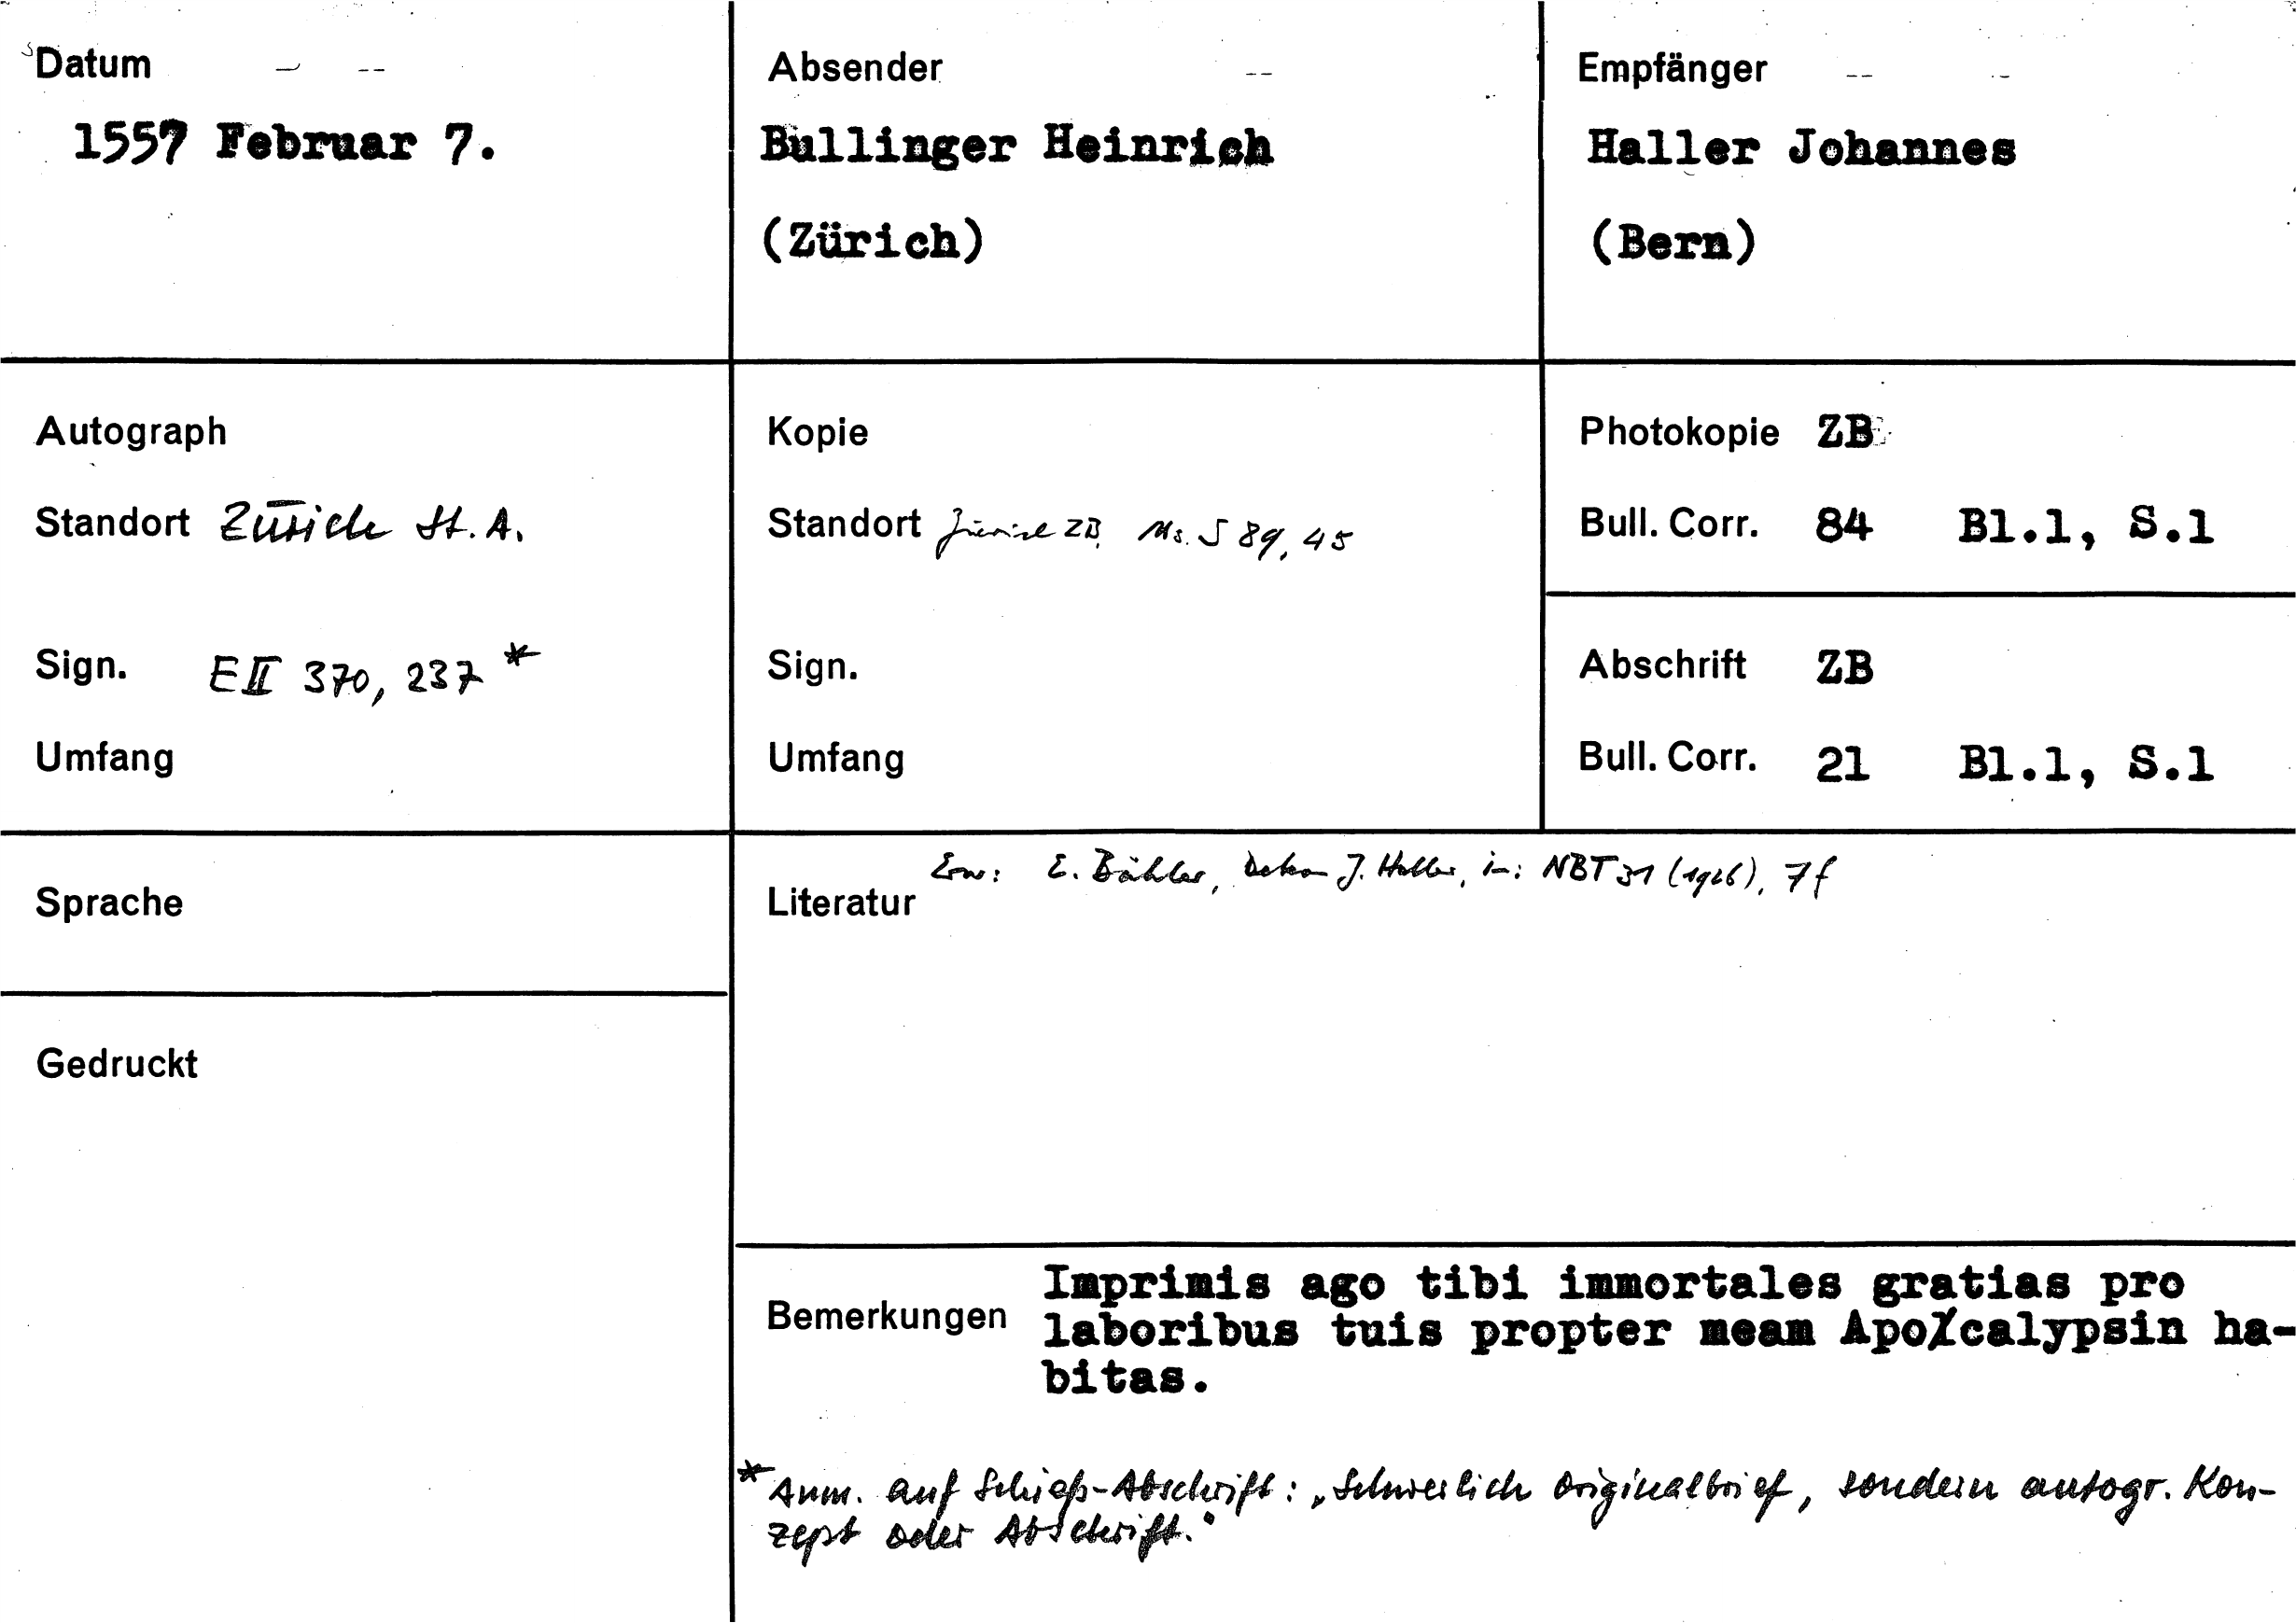 Datum
1557 Februar 7.
Absender
Bullinger Heinrich
(Zürich)
Empfänger
Haller Johannes
(Bern)
Autograph
Standort Zürich St. A.
Sign. E II 370, 237 *
Umfang
Kopie
Standort Zürich ZB, Ms. S 89, 45
Sign.
Umfang
Photokopie ZB
Bull. Corr. 84 Bl.1, S.1
Abschrift ZB
Bull. Corr. 21 Bl.1, S.1
Sprache
Gedruckt
Erw: E. Bähler, Dekan J. Haller, in: NBT 31 (1926), 7f
Literatur
Bemerkungen
Imprimis ago tibi immortales gratias pro
laboribus tuis propter meam Apo/calypsin ha-
bitas.
* Anm. auf Schieß-Abschrift: „Schwerlich Originalbrief, sondern autogr. Kon-
zept oder Abschrift."